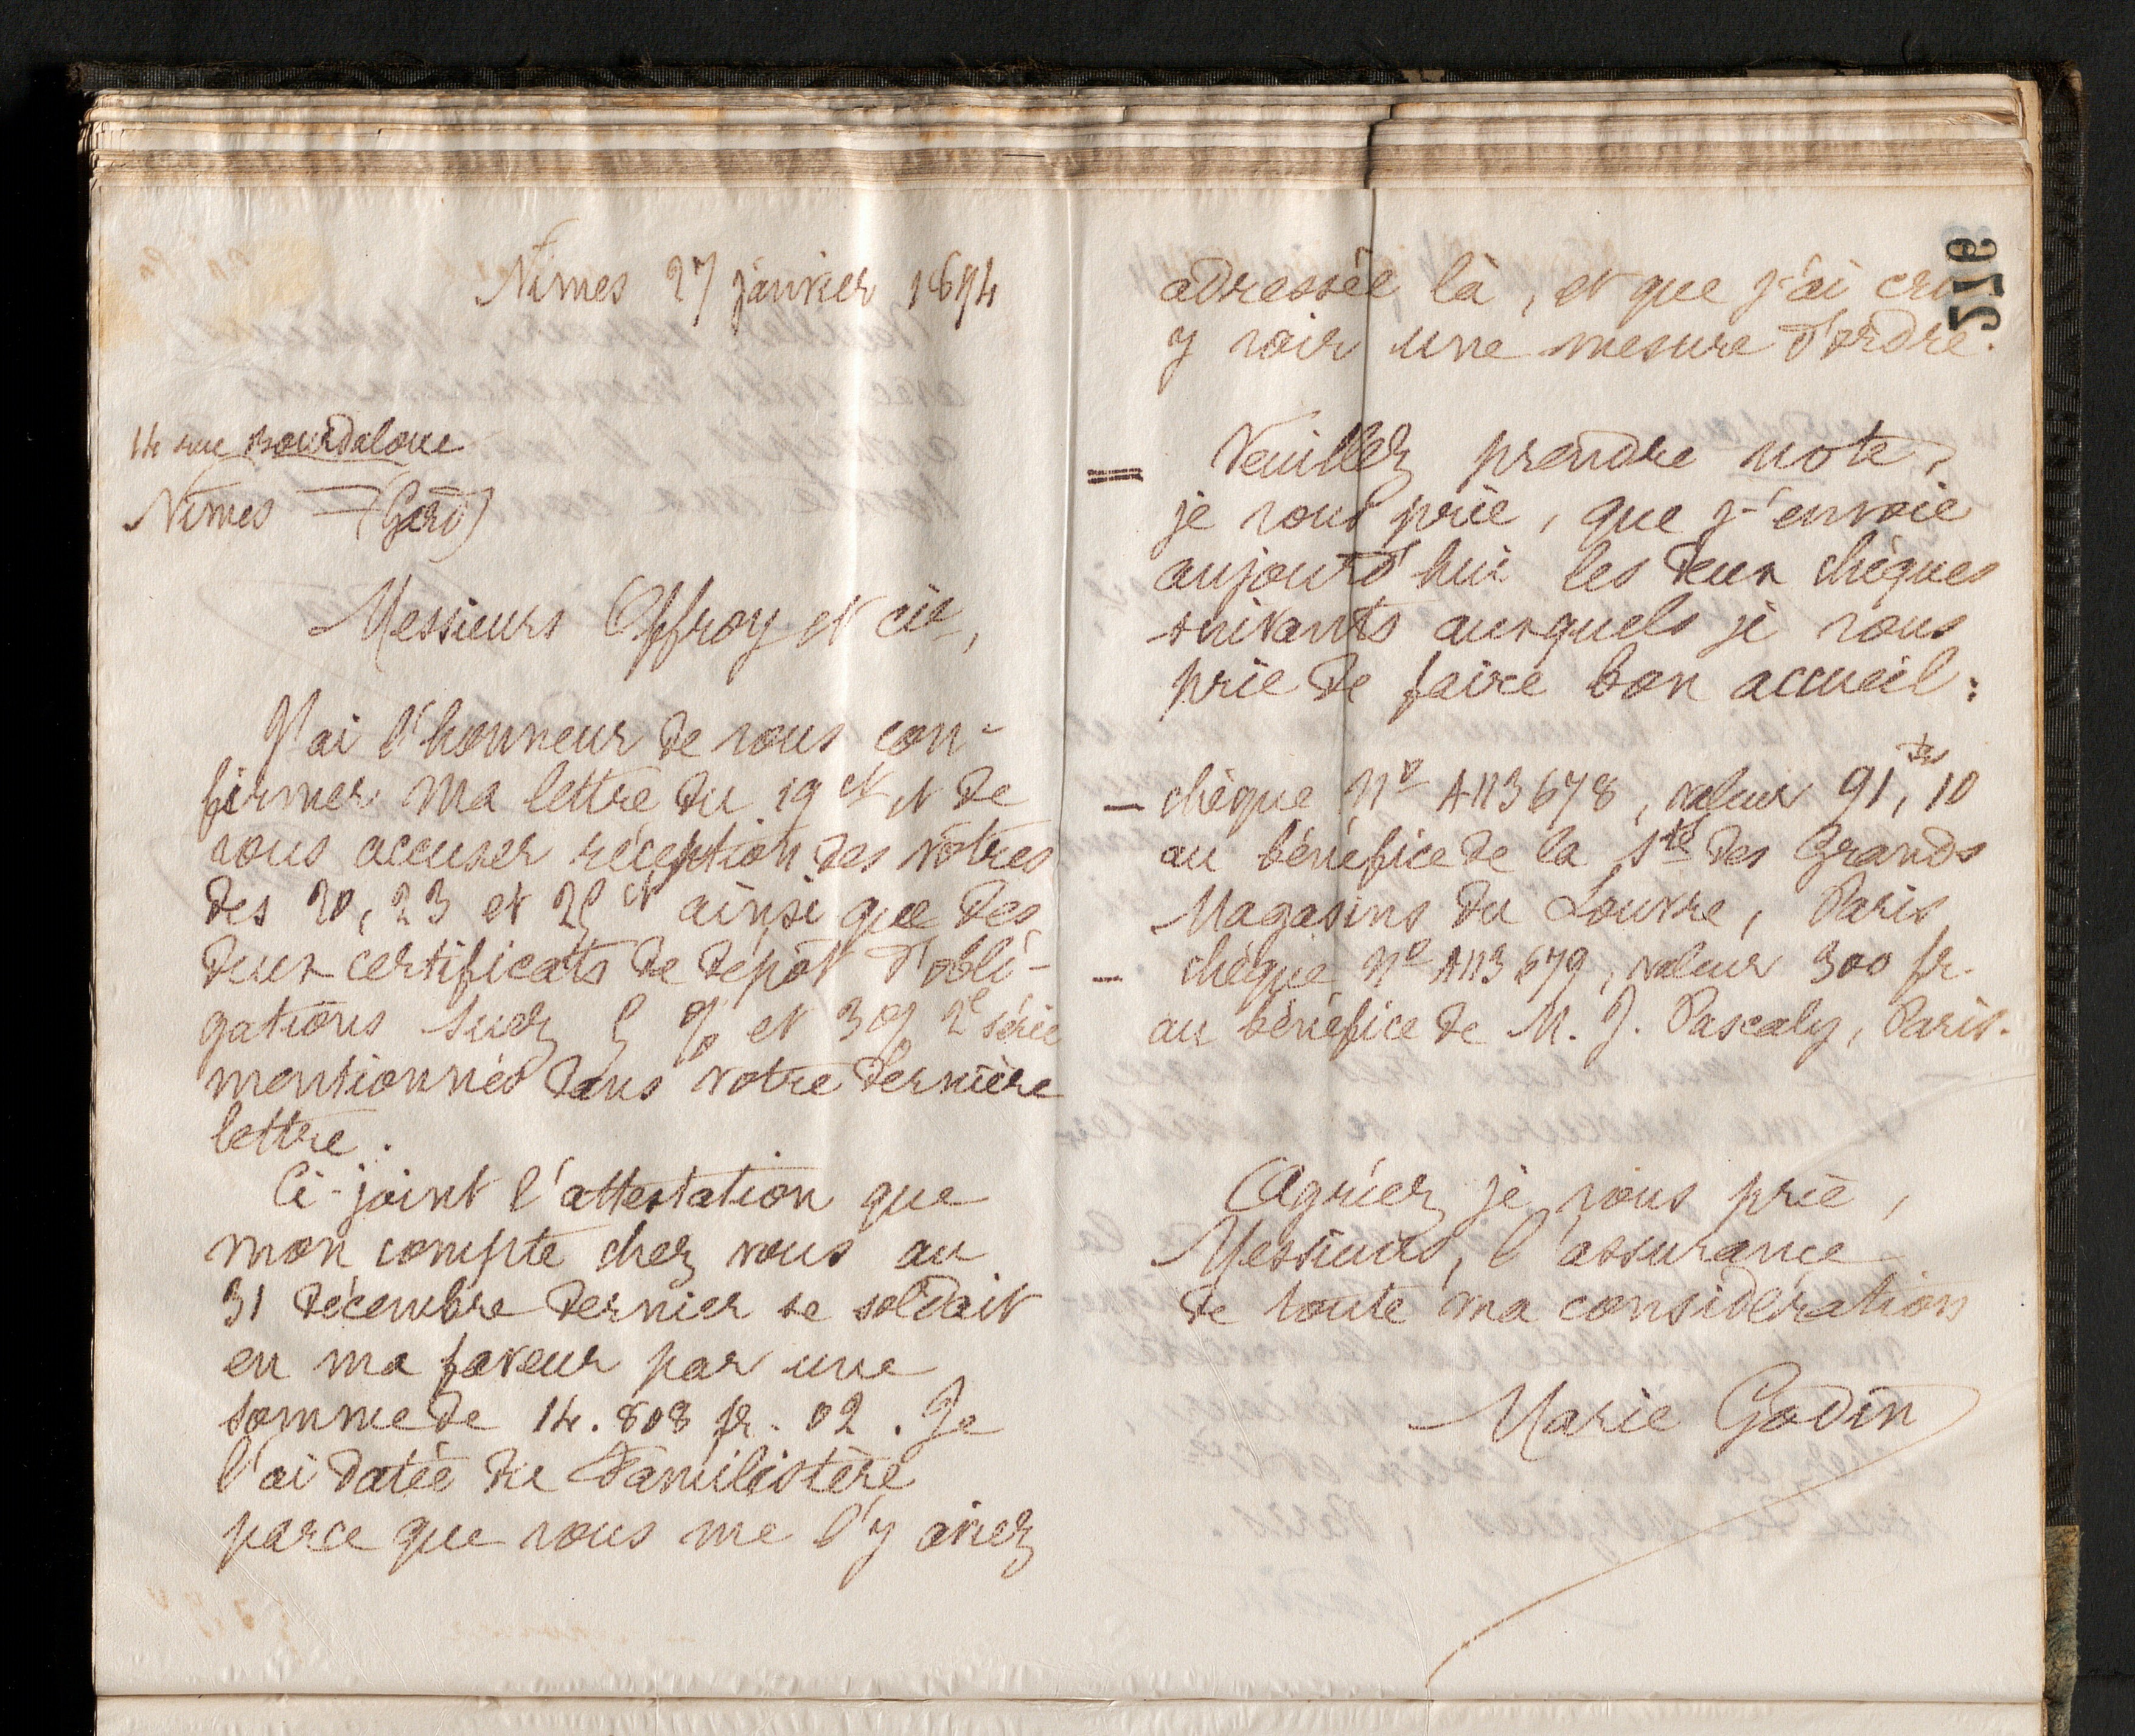 Nîmes 27 janvier 1894
14 rue Bourdaloue
Nîmes (Gard)
Messieurs Offroy et cie,
J'ai l'honneur de vous con-
firmer ma lettre du 19 ct et de
vous accuser réception des vôtres
des 20, 23 et 25 ct ainsi que des
deux certificats de dépôt d'obli-
gations Suez 5 % et 3 % 2e série
mentionnés dans votre dernière
lettre.
Ci-joint l'attestation que
mon compte chez vous au
31 décembre dernier se soldait
en ma faveur par une
somme de 14.808 fr. 02. Je
l'ai datée du Familistère
parce que vous me l'y aviez
516
adressée là, et que j'ai cru
y voir une mesure d'ordre.
= Veuillez prendre note,
je vous prie, que j'envoie
aujourd'hui les deux chèques
suivants auxquels je vous
prie de faire bon accueil :
— chèque No A113678, valeur 91 frs, 10
au bénéfice de la Sté des Grands
Magasins du Louvre, Paris
— chèque No A113679, valeur 300 fr.
au bénéfice de M. J. Pascaly, Paris.
Agréez je vous prie,
Messieurs, l'assurance
de toute ma considération
Marie Godin